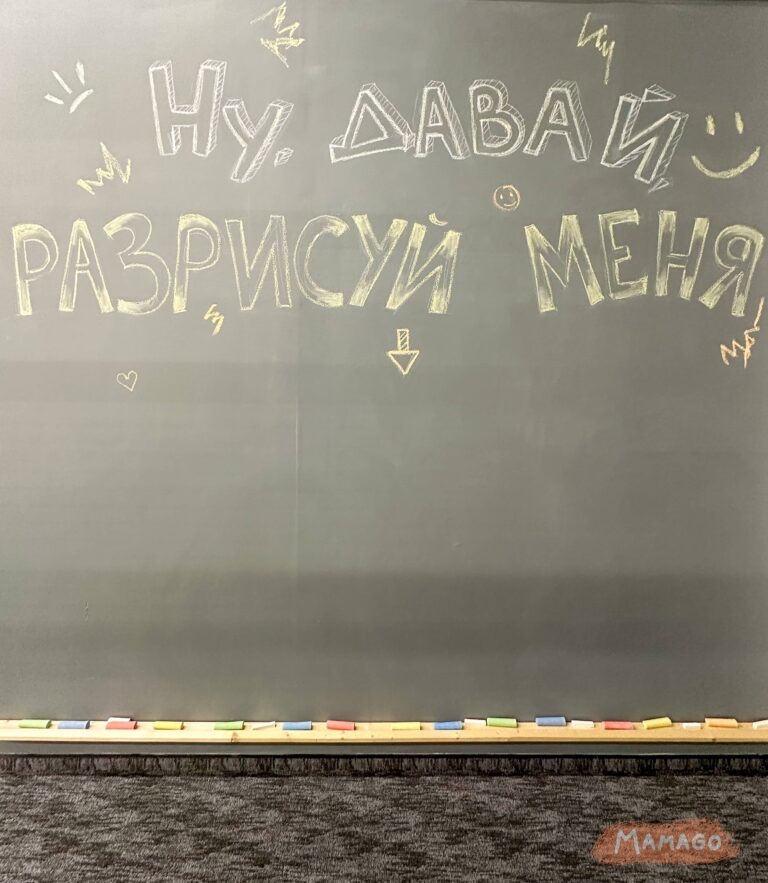 Ну, ДАВАЙ
РАЗРИСУЙ МЕНЯ
MAMAGO